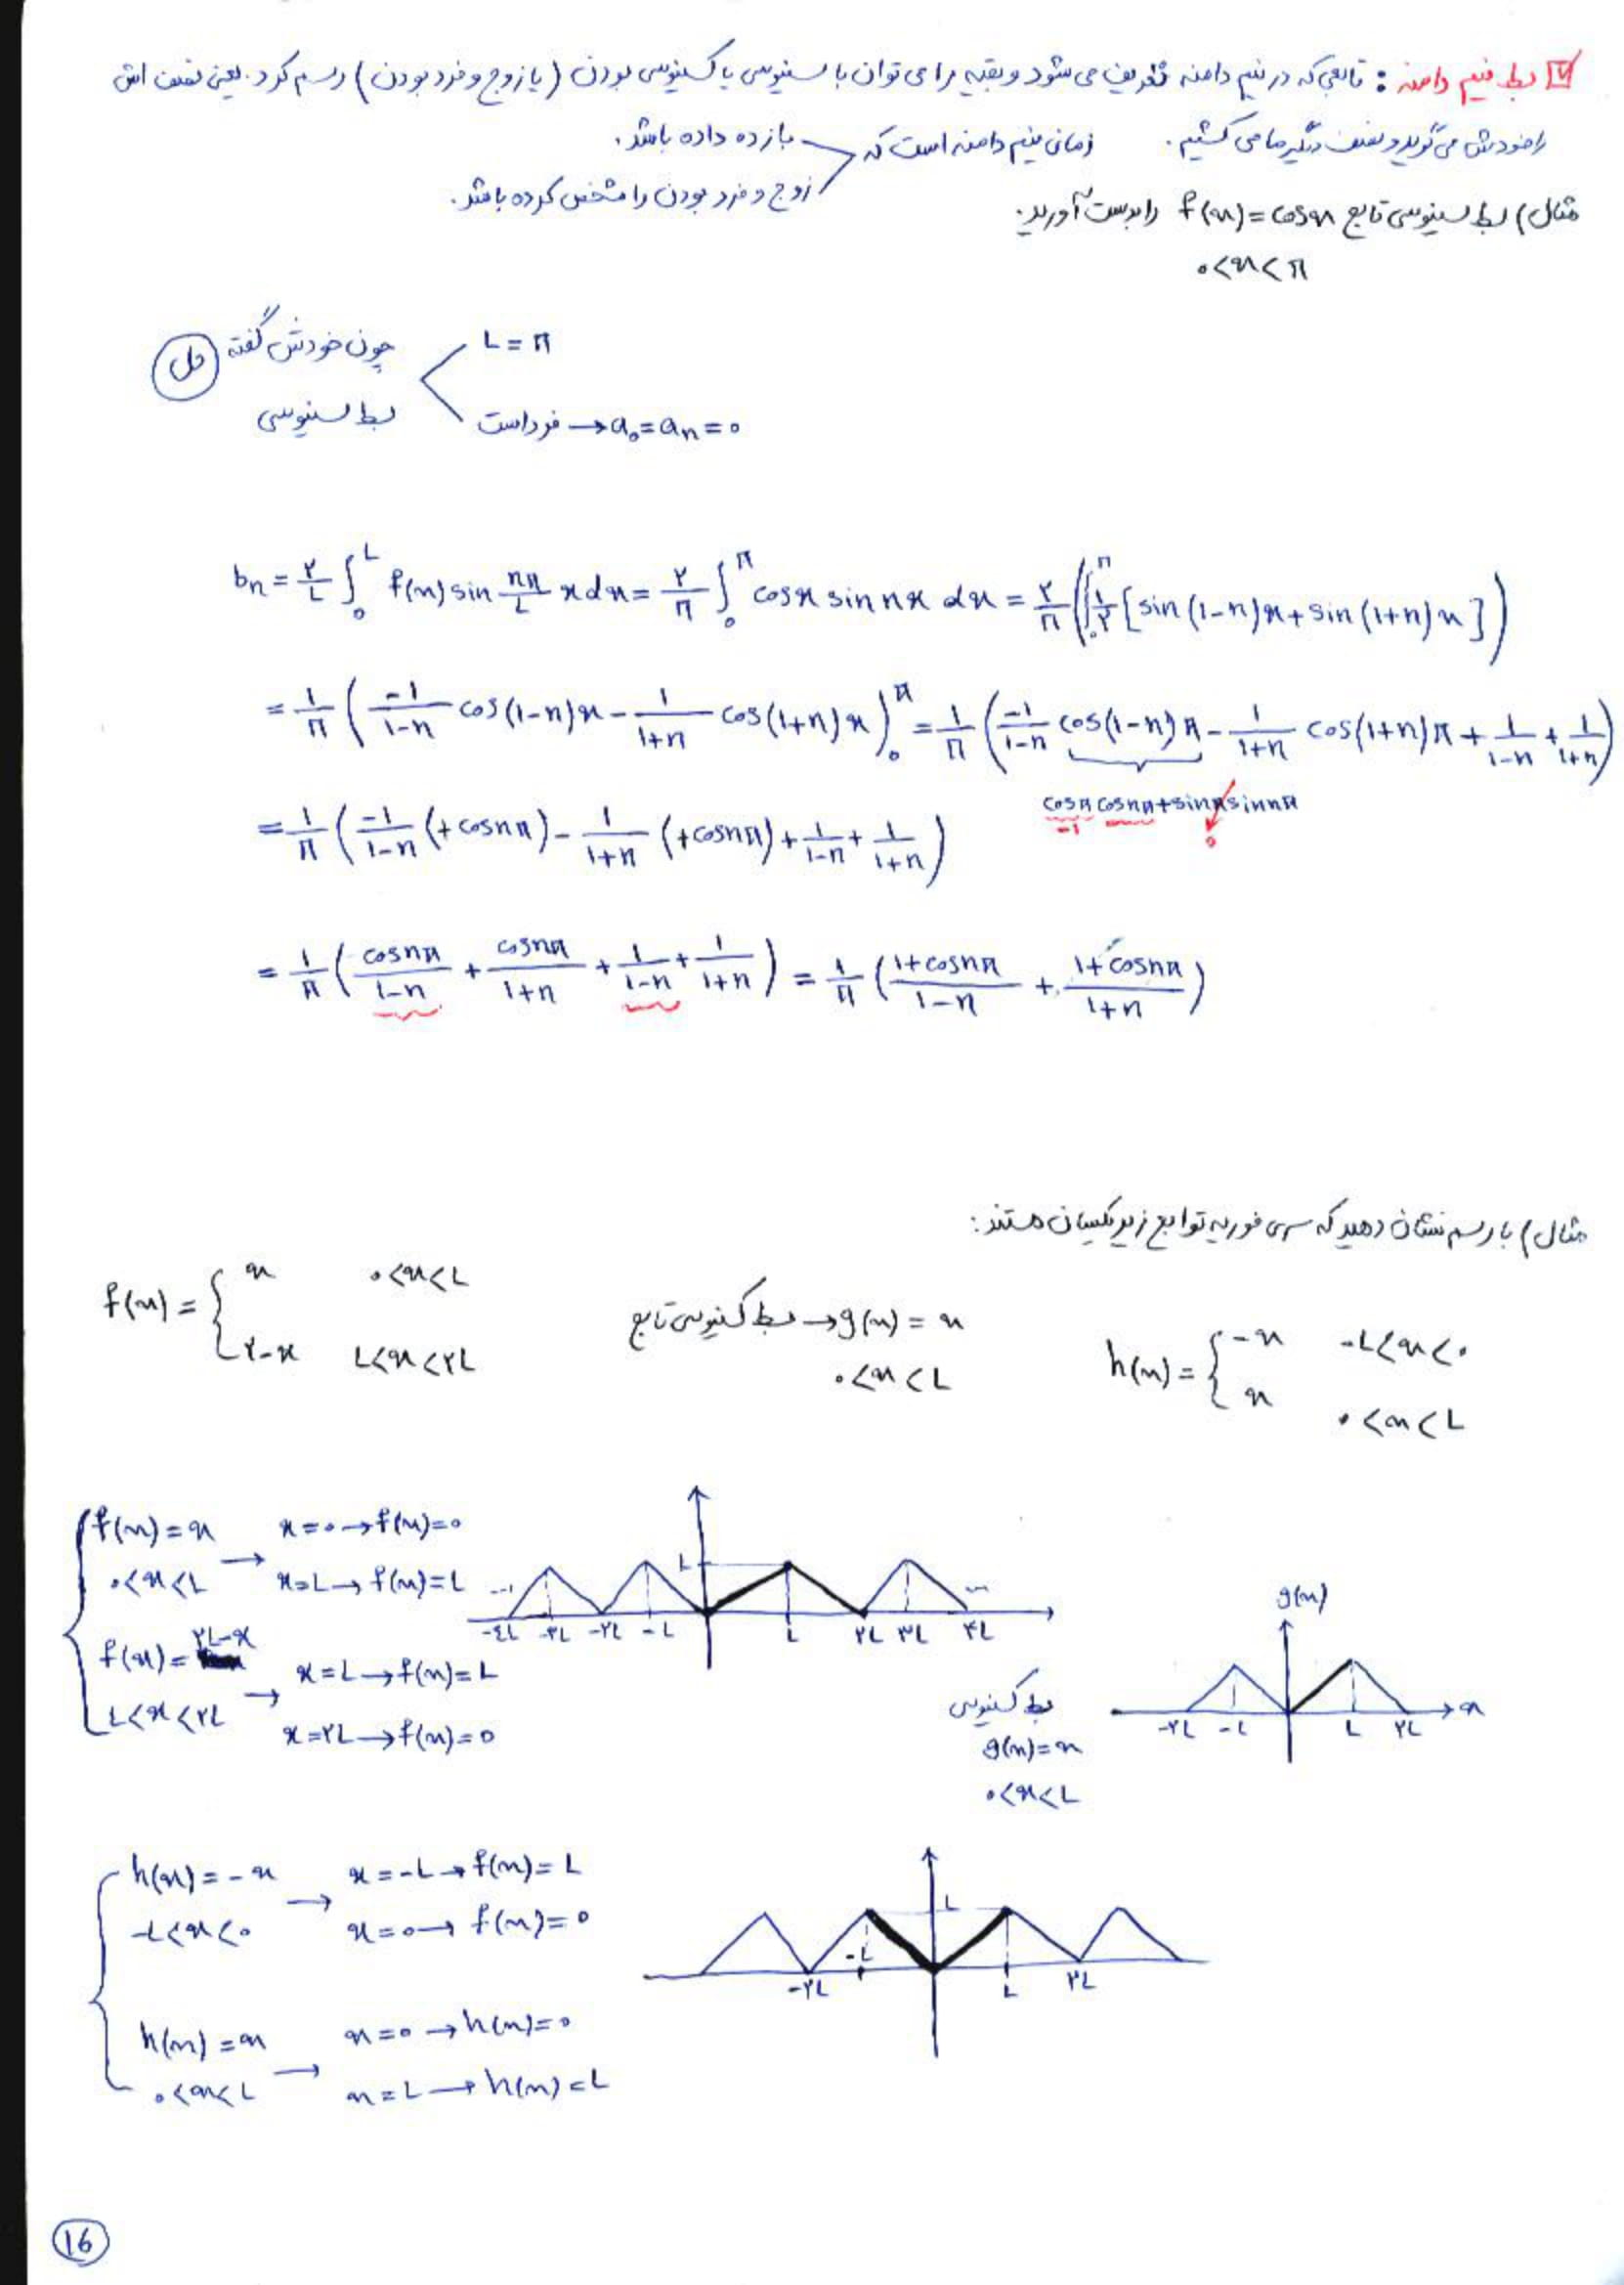 بسط نیم دامنه : تابعی که در نیم دامنه تعریف می شود و بقیه را می توان با سینوسی یا کسینوسی بودن (یا زوج و فرد بودن) رسم کرد. یعنی نصف اش
را خودش می گوید و نصف دیگر ما می کشیم. زمانی نیم دامنه است که
بازه داده باشد.
زوج و فرد بودن را مشخص کرده باشد.
مثال) بسط سینوسی تابع f(x)=cosx را بدست آورید.
۰<x<π
حل
چون خودش گفته بسط سینوسی
L=π
فرد است → a₀=aₙ=۰
bn = ۲/L ∫₀^L f(x) sin nπ/L x dx = ۲/π ∫₀^π cosx sin nx dx = ۲/π (∫₀^π ۱/۲ [sin(۱-n)x + sin(۱+n)x])
= ۱/π (-۱/(۱-n) cos(۱-n)x - ۱/(۱+n) cos(۱+n)x)₀^π = ۱/π (-۱/(۱-n) cos(۱-n)π - ۱/(۱+n) cos(۱+n)π + ۱/(۱-n) + ۱/(۱+n))
cosπ cosnπ + sinπ sinnπ
-۱ ۰
= ۱/π (-۱/(۱-n) (+cosnπ) - ۱/(۱+n) (+cosnπ) + ۱/(۱-n) + ۱/(۱+n))
= ۱/π (cosnπ/(۱-n) + cosnπ/(۱+n) + ۱/(۱-n) + ۱/(۱+n)) = ۱/π ((۱+cosnπ)/(۱-n) + (۱+cosnπ)/(۱+n))
مثال) با رسم نشان دهید که سری فوریه توابع زیر یکسان هستند:
f(x) = { x ۰<x<L
L۲-x L<x<۲L
بسط کسینوسی تابع → g(x) = x
۰<x<L
h(x) = { -x -L<x<۰
x ۰<x<L
f(x)=x → x=۰→f(x)=۰
۰<x<L x=L→f(x)=L
f(x)=۲L-x → x=L→f(x)=L
L<x<۲L x=۲L→f(x)=۰
L
-٤L -۳L -۲L -L L ۲L ۳L ۴L
g(x)
-۲L -L L ۲L x
بسط کسینوسی
g(x)=x
۰<x<L
h(x)=-x → x=-L→f(x)=L
-L<x<۰ x=۰→f(x)=۰
L
-۲L -L L ۲L
h(x)=x → x=۰→h(x)=۰
۰<x<L x=L→h(x)=L
16